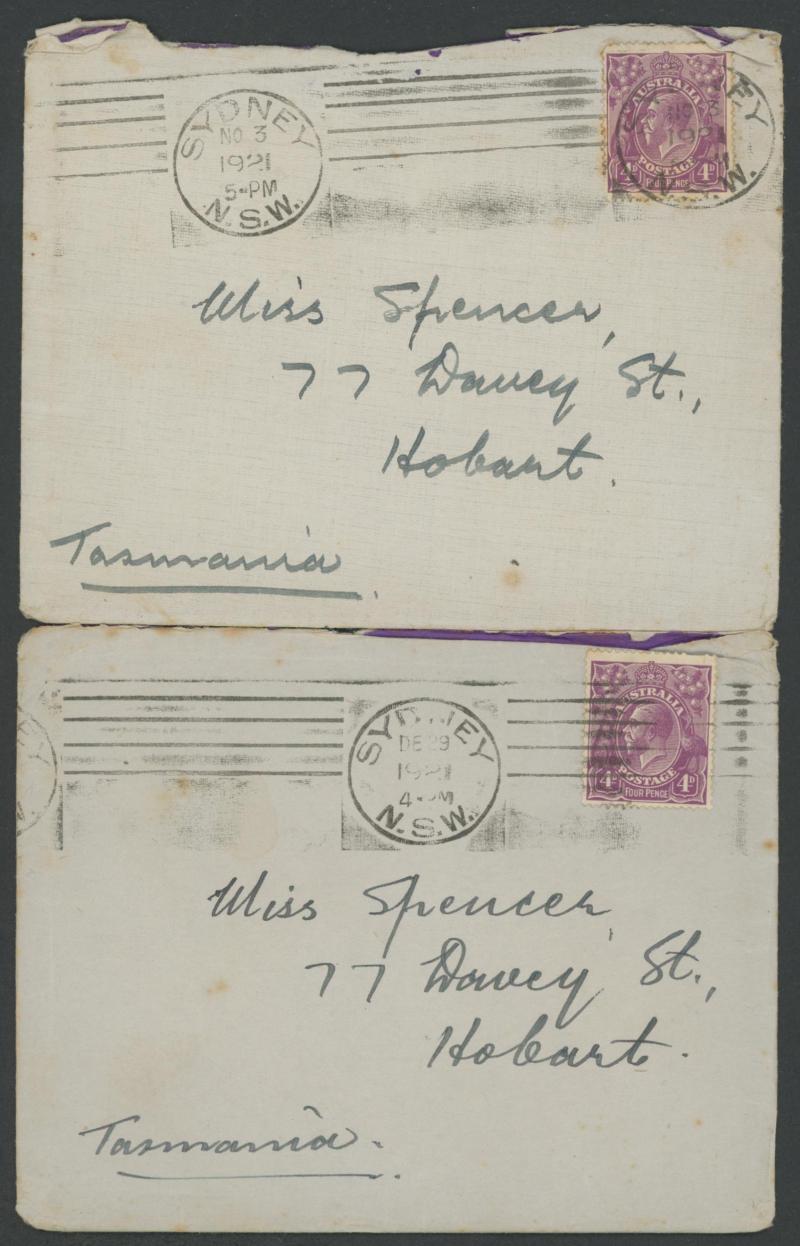 SYDNEY
NO 3
1921
5-PM
N.S.W.
AUSTRALIA
1921
POSTAGE
4D FOUR PENCE 4D
Miss Spencer,
77 Davey St.,
Hobart.
Tasmania.
SYDNEY
DE 29
1921
4-PM
N.S.W.
AUSTRALIA
POSTAGE
4D FOUR PENCE 4D
Miss Spencer,
77 Davey St.,
Hobart.
Tasmania.